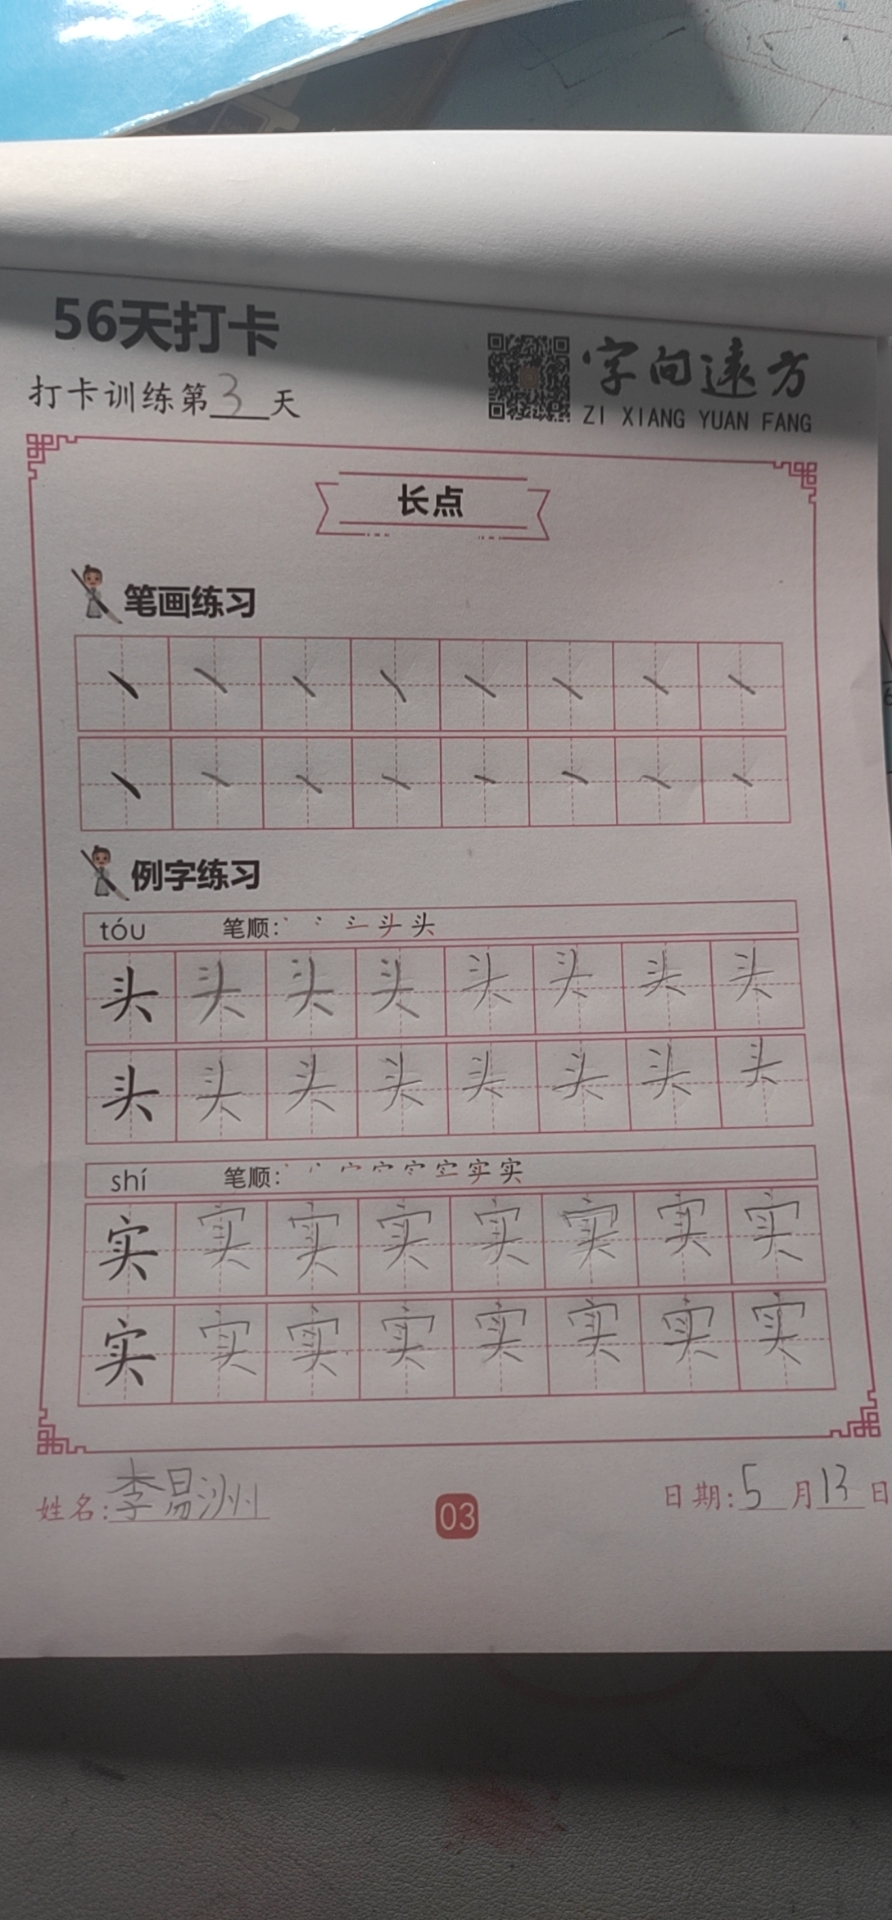 56天打卡
打卡训练第3天
字向远方
ZI XIANG YUAN FANG
长点
笔画练习
例字练习
tóu 笔顺:
头 头 头 头 头 头 头 头
头 头 头 头 头 头 头 头
shí 笔顺:
实 实 实 实 实 实 实 实
实 实 实 实 实 实 实 实
姓名:李易洲
03
日期:5月13日